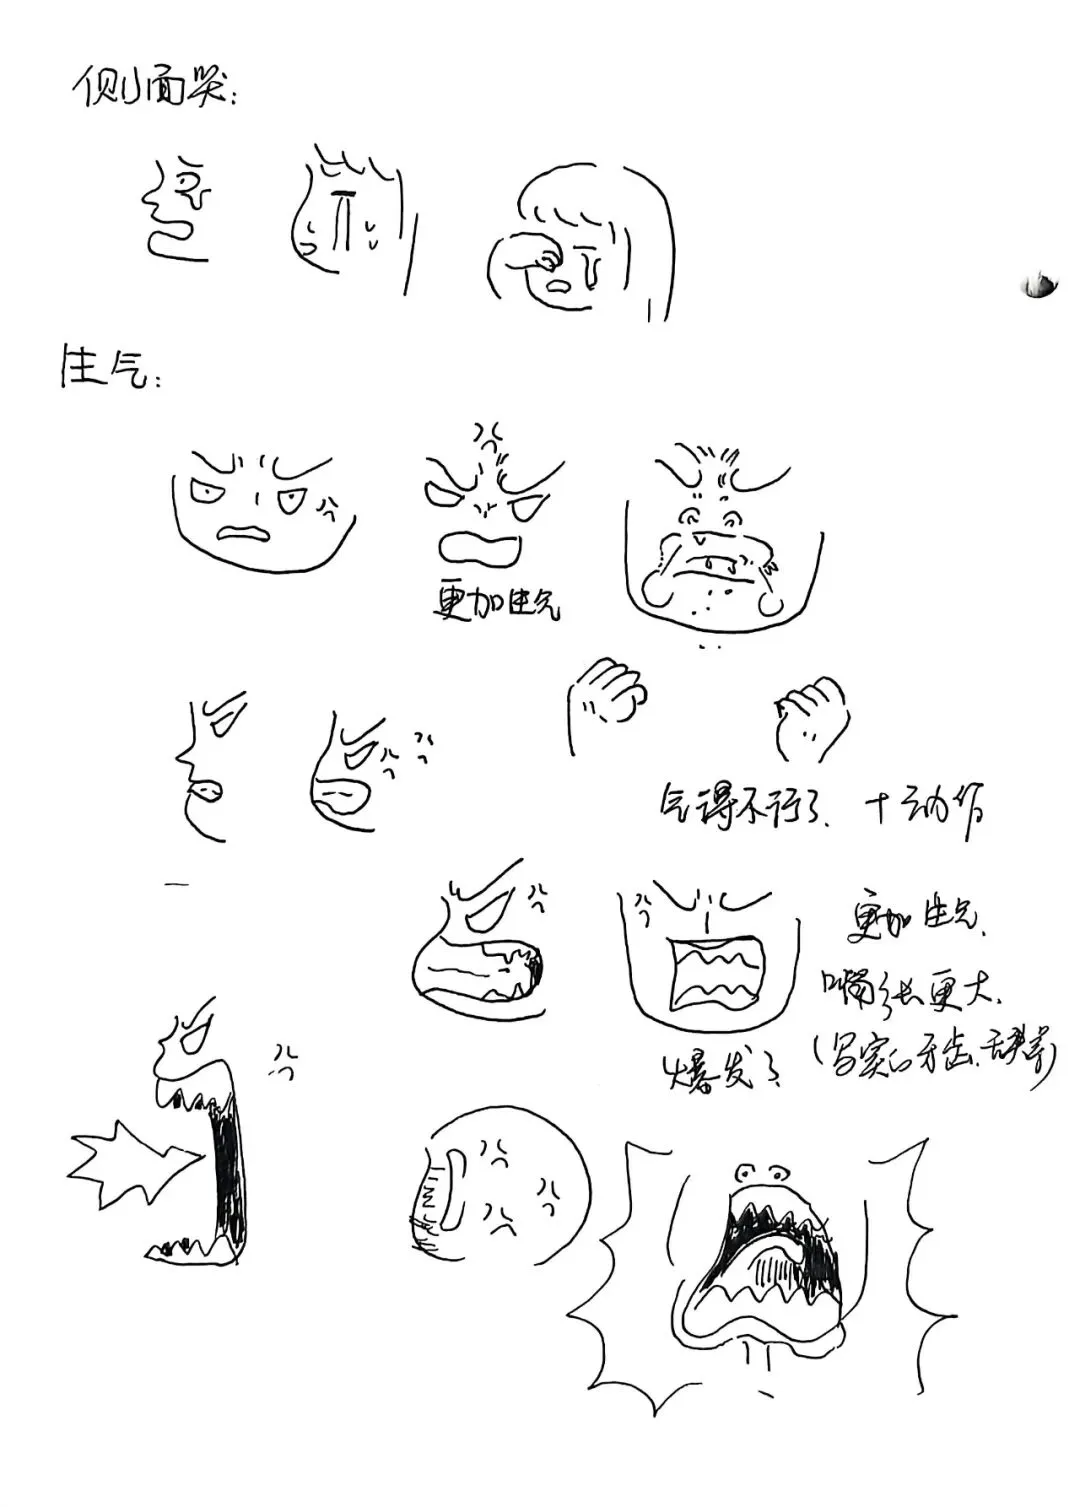 侧面哭：
生气：
更加生气
气得不行了、十动作
更加生气、
嘴张更大、
(写实的牙齿、舌头等)
爆发了